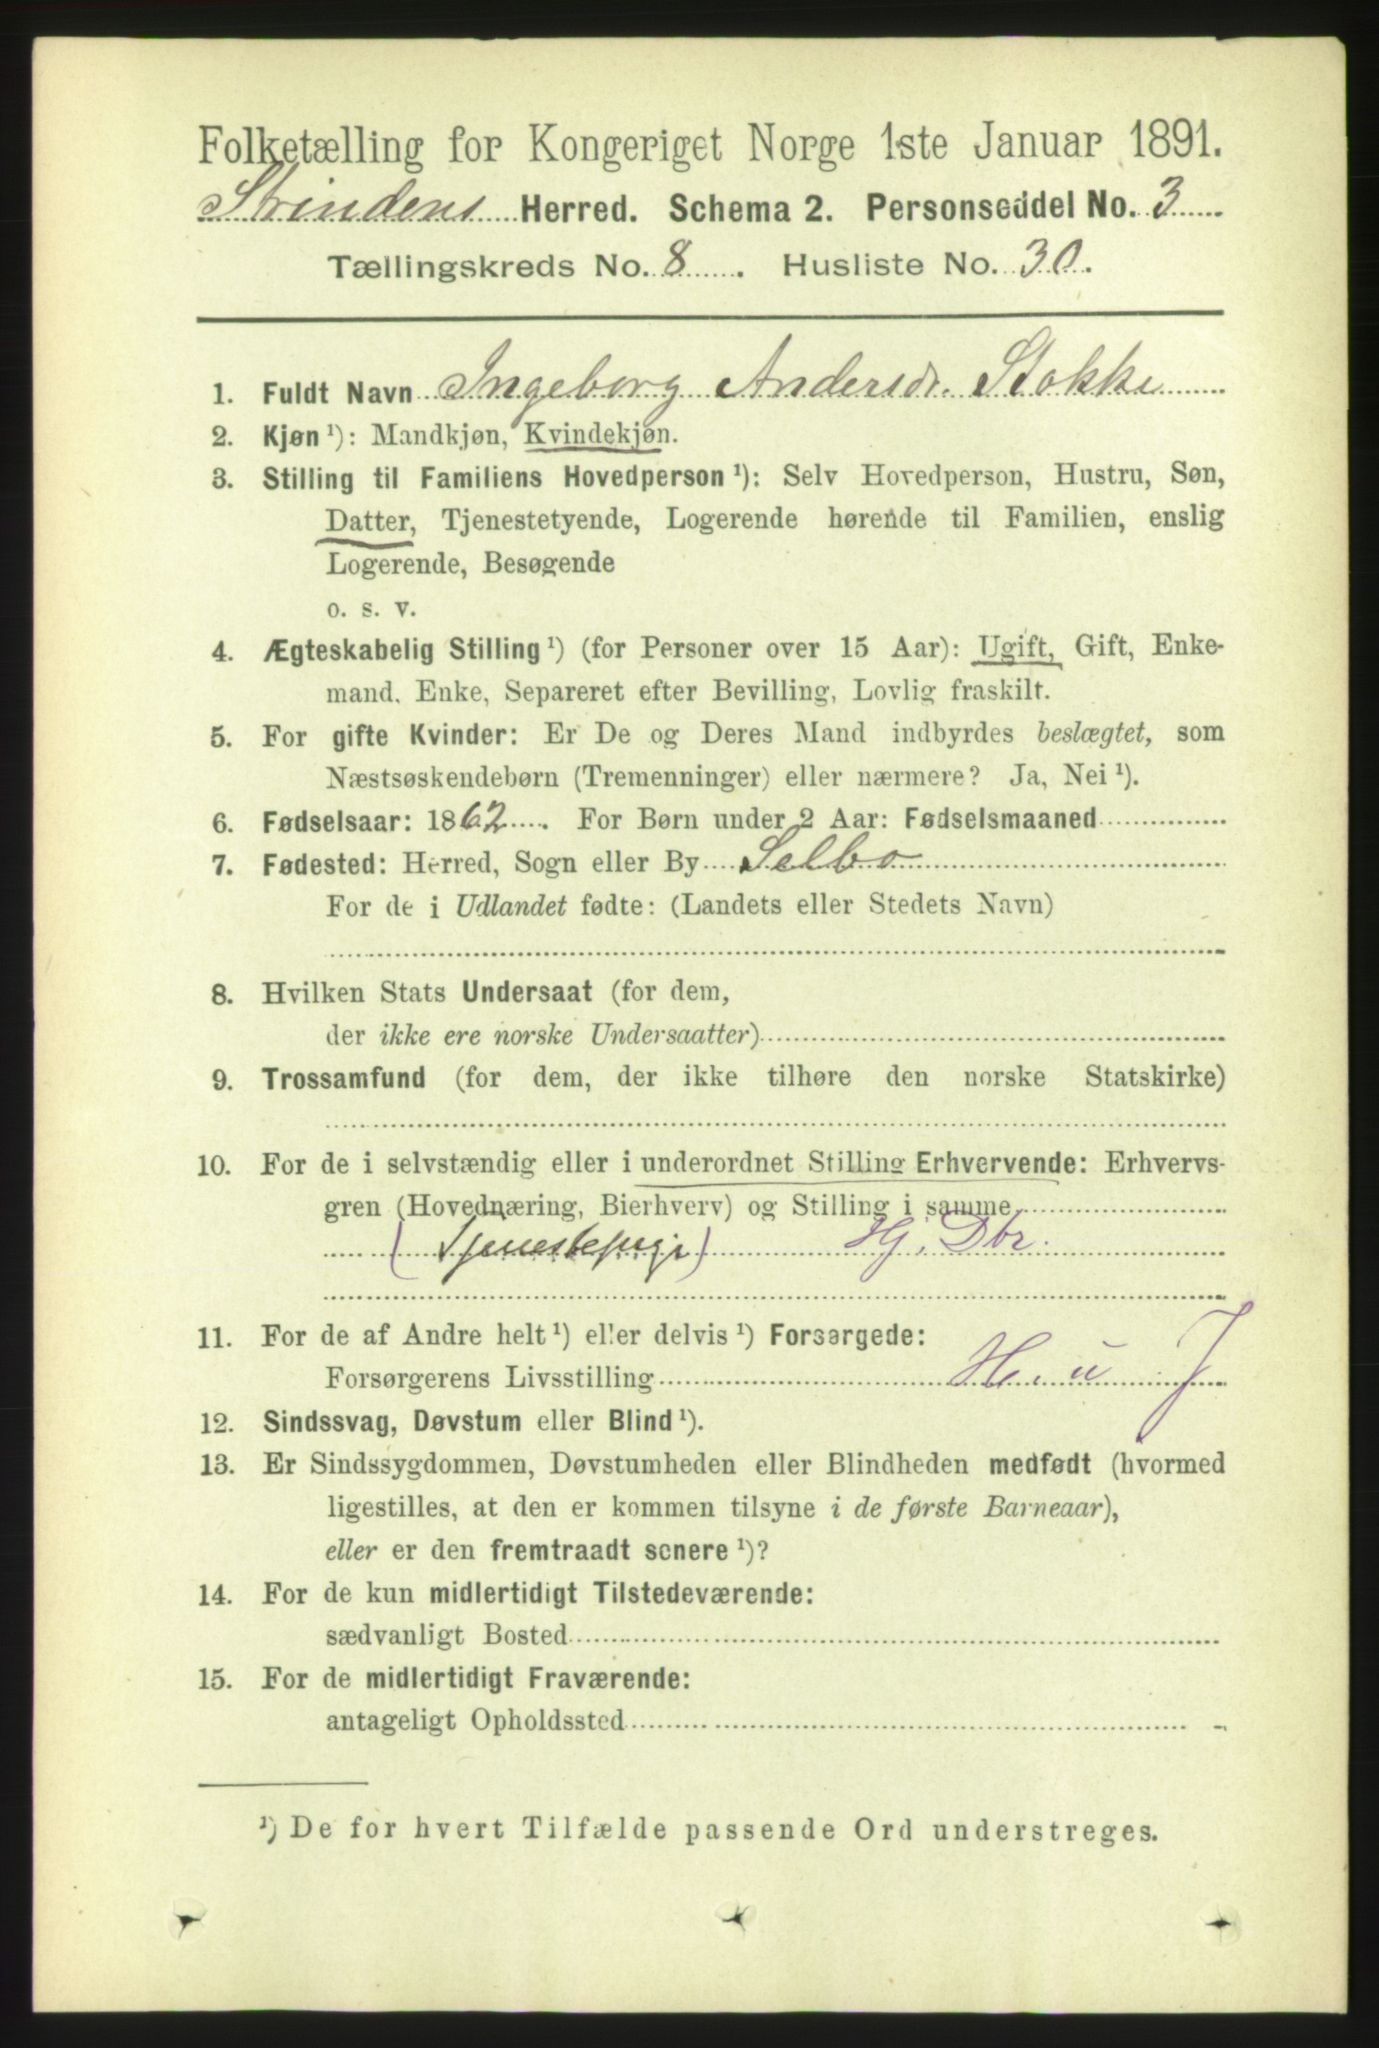 Folketælling for Kongeriget Norge 1ste Januar 1891.
Strindens Herred. Schema 2. Personseddel No. 3
Tællingskreds No. 8. Husliste No. 30.
1. Fuldt Navn Ingeborg Andersdr. Stokke
2. Kjøn ¹): Mandkjøn, Kvindekjøn.
3. Stilling til Familiens Hovedperson ¹): Selv Hovedperson, Hustru, Søn,
Datter, Tjenestetyende, Logerende hørende til Familien, enslig
Logerende, Besøgende
o. s. v.
4. Ægteskabelig Stilling ¹) (for Personer over 15 Aar): Ugift, Gift, Enke-
mand, Enke, Separeret efter Bevilling, Lovlig fraskilt.
5. For gifte Kvinder: Er De og Deres Mand indbyrdes beslægtet, som
Næstsøskendebørn (Tremenninger) eller nærmere? Ja, Nei ¹).
6. Fødselsaar: 1862. For Børn under 2 Aar: Fødselsmaaned
7. Fødested: Herred, Sogn eller By Selbo
For de i Udlandet fødte: (Landets eller Stedets Navn)
8. Hvilken Stats Undersaat (for dem,
der ikke ere norske Undersaatter)
9. Trossamfund (for dem, der ikke tilhøre den norske Statskirke)
10. For de i selvstændig eller i underordnet Stilling Erhvervende: Erhvervs-
gren (Hovednæring, Bierhverv) og Stilling i samme
(Tjenestepige) Hj. Dtr.
11. For de af Andre helt ¹) eller delvis ¹) Forsørgede:
Forsørgerens Livsstilling H. u J
12. Sindssvag, Døvstum eller Blind ¹).
13. Er Sindssygdommen, Døvstumheden eller Blindheden medfødt (hvormed
ligestilles, at den er kommen tilsyne i de første Barneaar),
eller er den fremtraadt senere ¹)?
14. For de kun midlertidigt Tilstedeværende:
sædvanligt Bosted
15. For de midlertidigt Fraværende:
antageligt Opholdssted
¹) De for hvert Tilfælde passende Ord understreges.